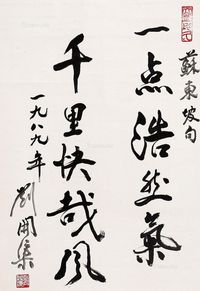 一点浩然氣
千里快哉風
蘇東坡句
一九八九年
劉開渠